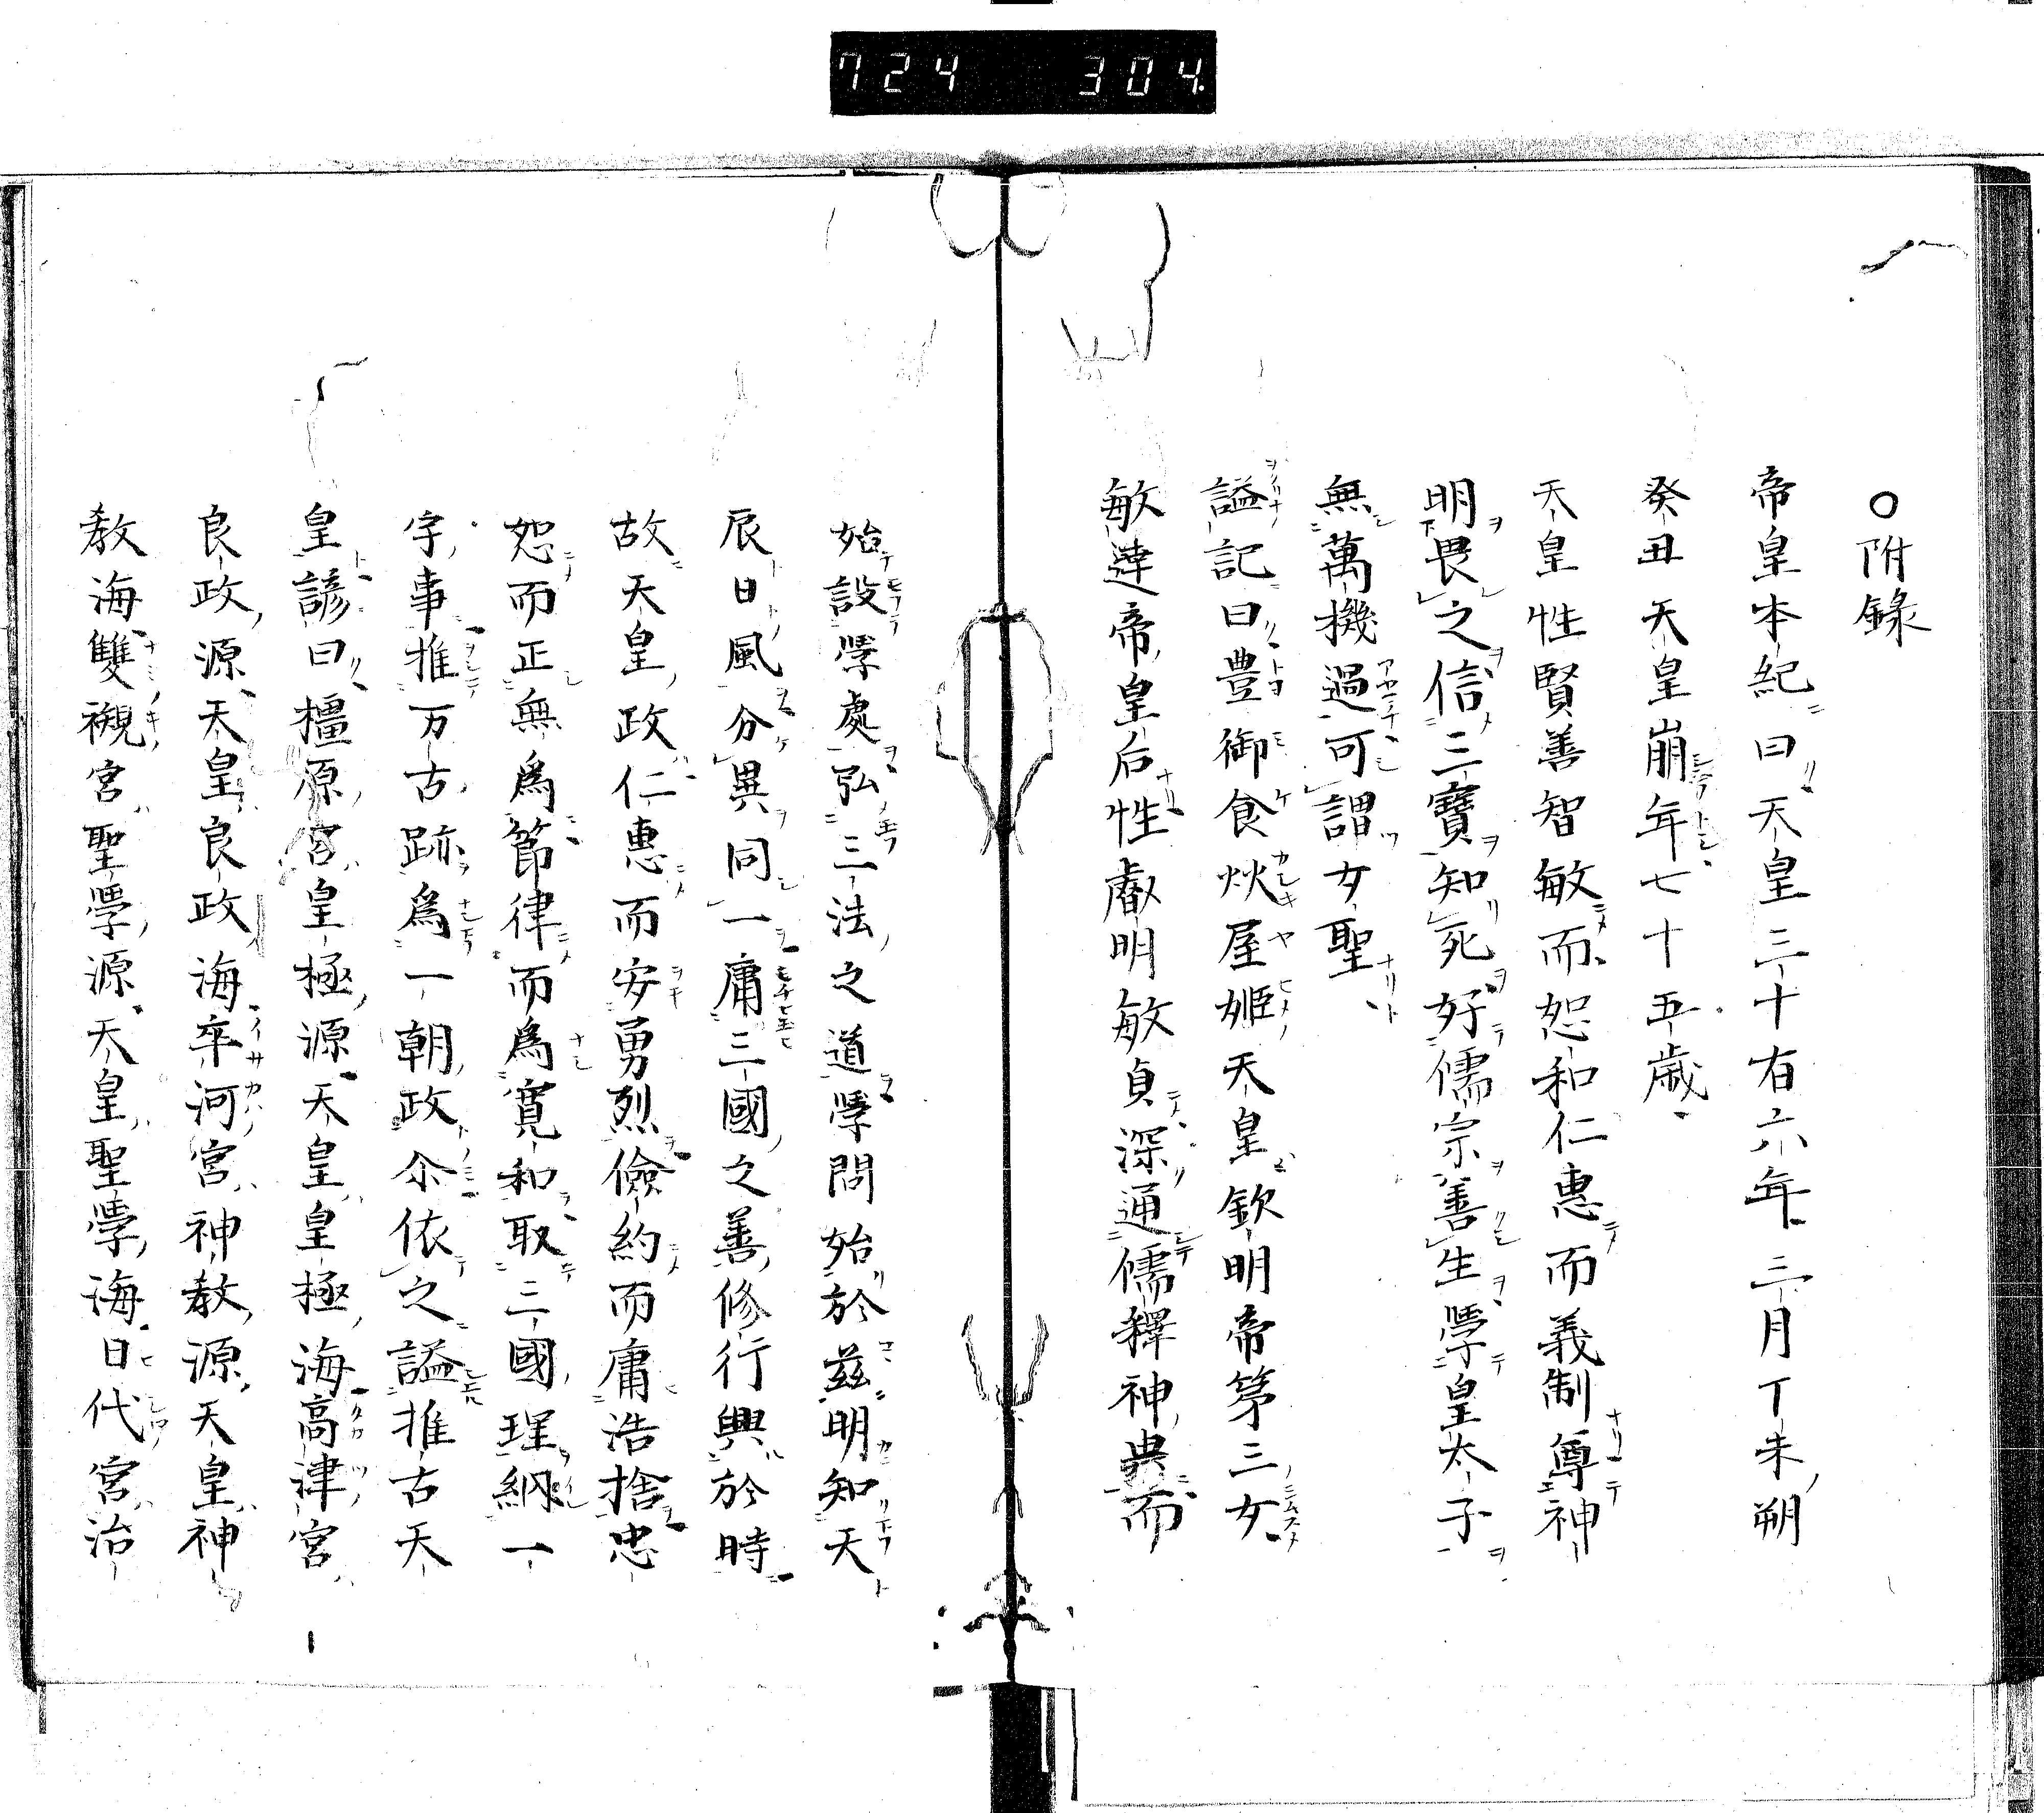 724 304.
○附錄
帝皇本紀曰天皇三十有六年三月丁未朔
癸丑天皇崩年七十五歳
天皇性賢善智敏而恕和仁惠而義制尊神
明畏之信三寶知死好儒宗善生學皇太子
無萬機過可謂女聖
謚記曰豊御食炊屋姬天皇欽明帝第三女
敏達帝皇后性叡明敏貞深通儒釋神典而
始設學處弘三法之道學問始於茲明知天
辰日風分異同一庸三國之善修行興於時
故天皇政仁惠而安勇烈儉約而庸浩捨忠
恕而正無爲節律而爲寬和取三國理納一
字事推万古跡爲一朝政尒依之謚推古天
皇諺曰橿原宮皇極源天皇皇極海高津宮
良政源天皇良政海率河宮神教源天皇神
教海雙櫬宮聖學源天皇聖學海日代宮治